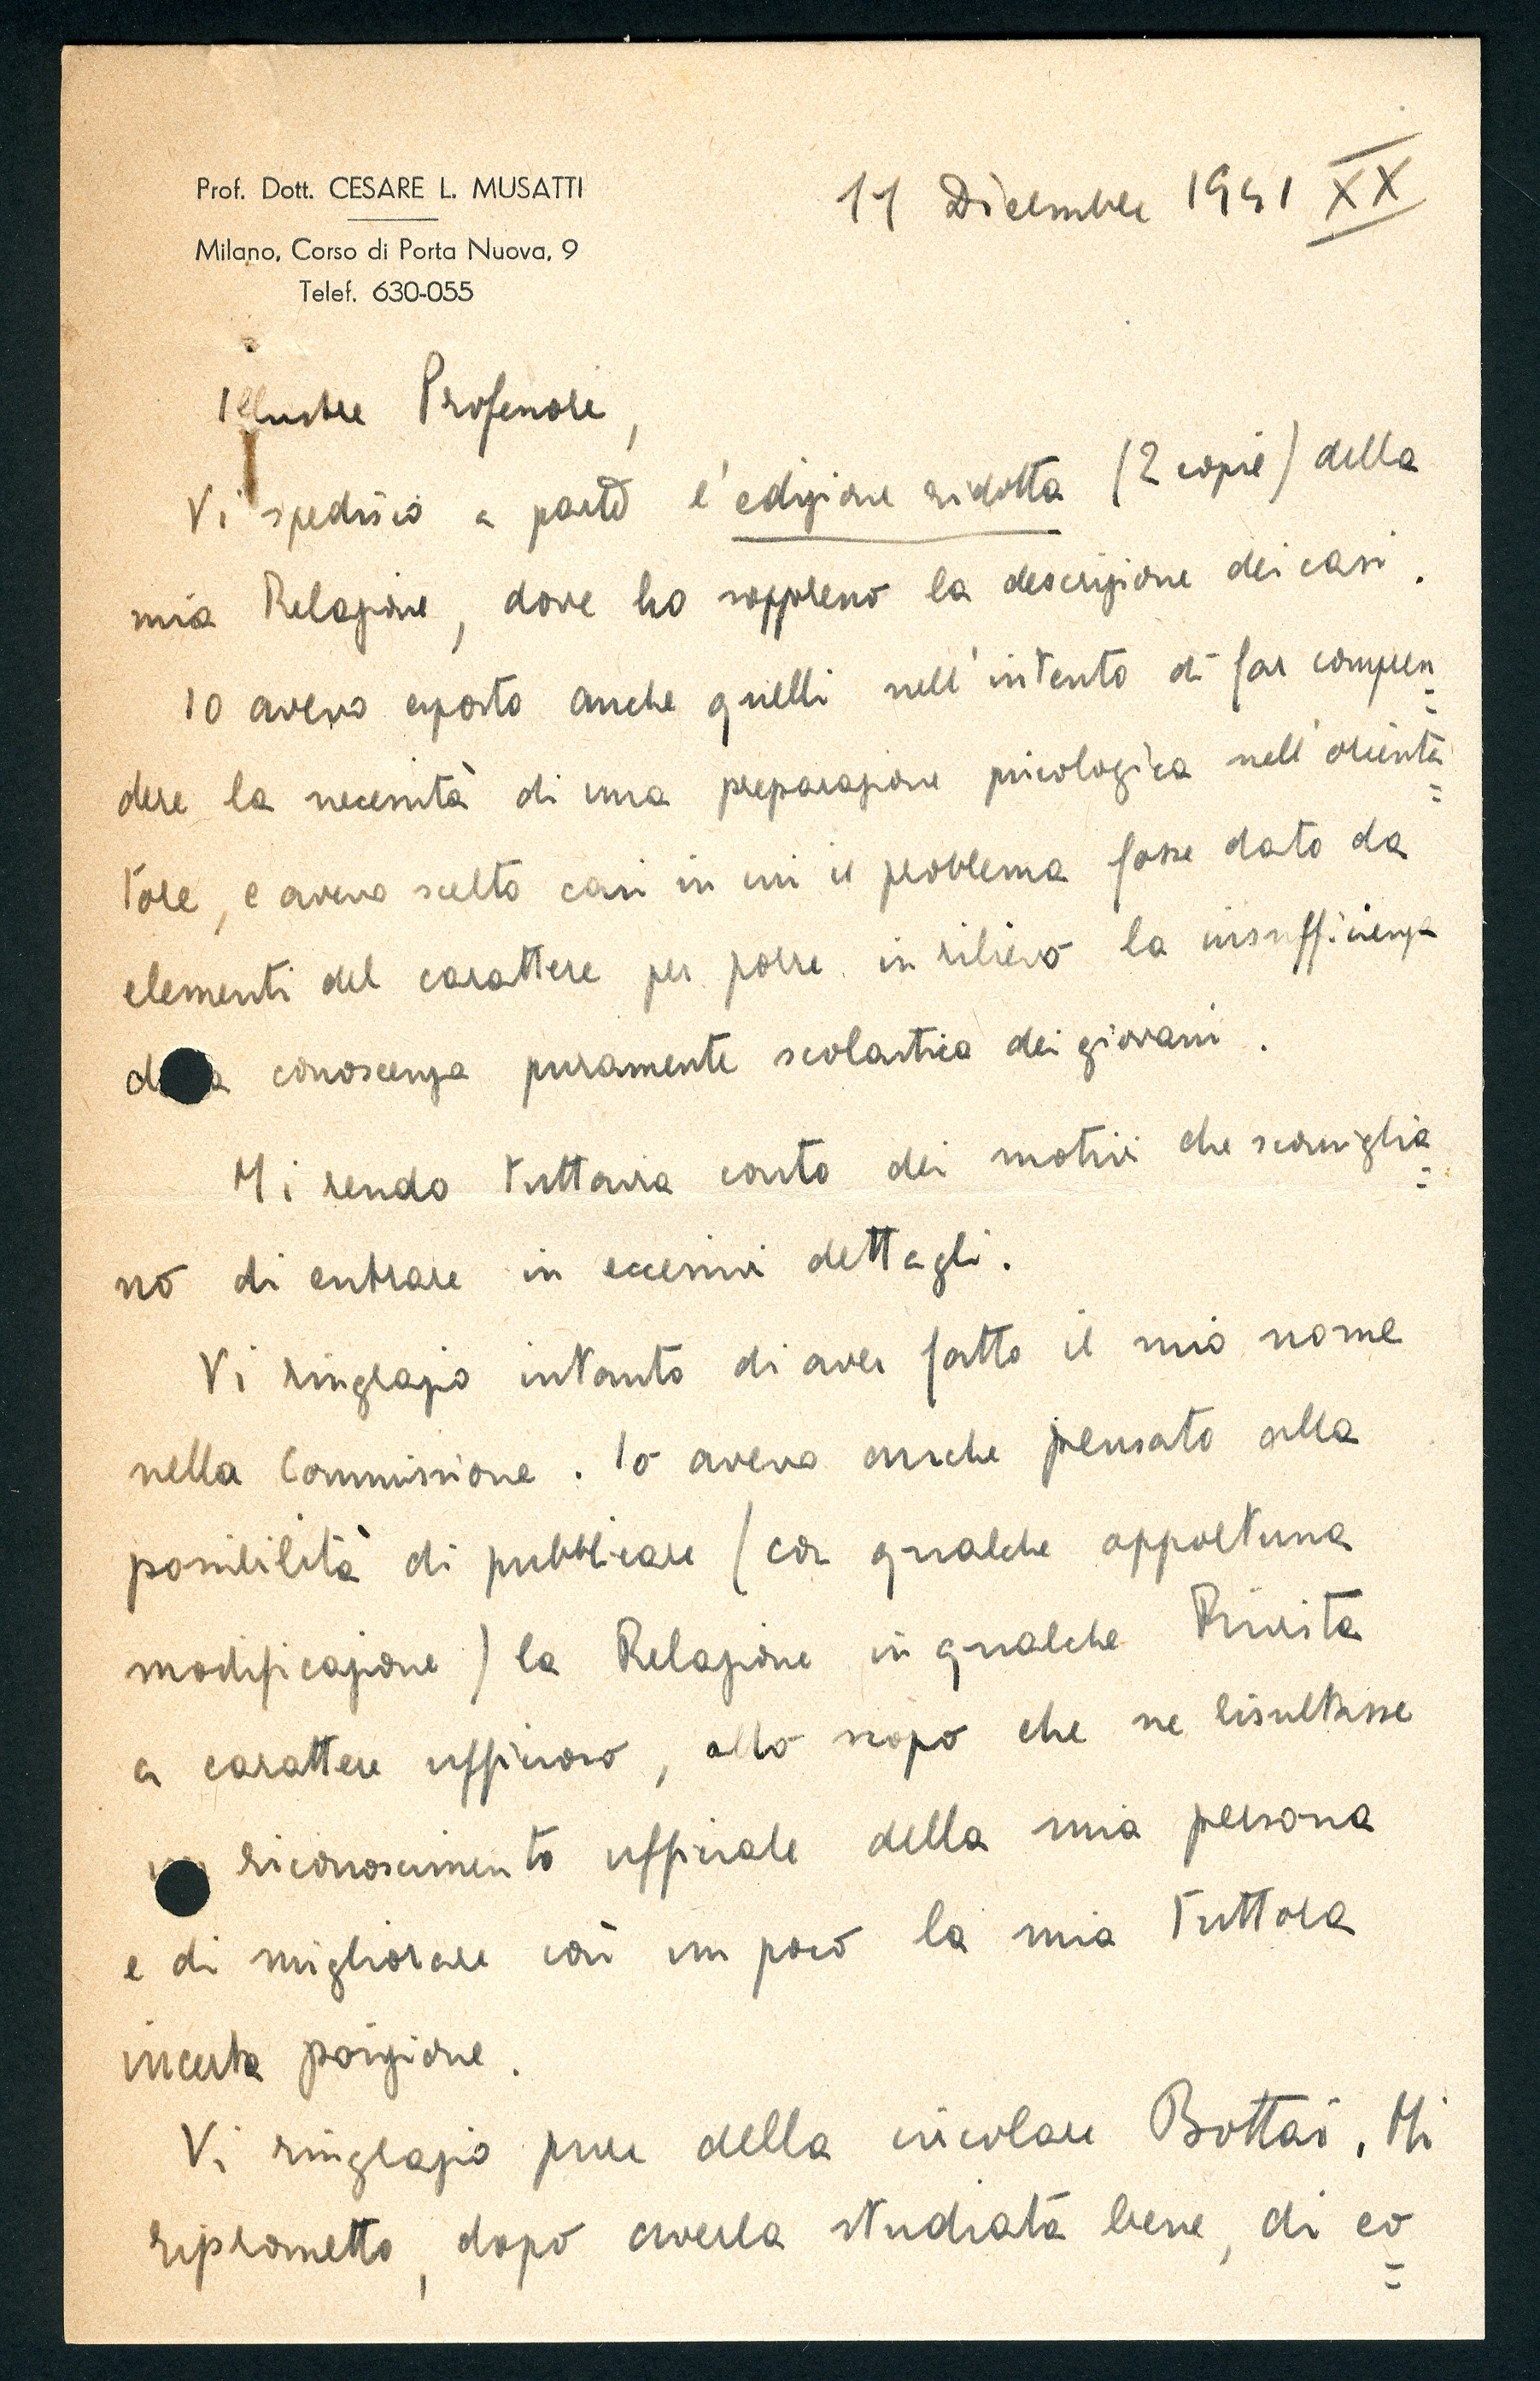 Prof. Dott. CESARE L. MUSATTI
Milano, Corso di Porta Nuova, 9
Telef. 630-055
11 Dicembre 1941 XX
Illustre Professore,
Vi spedisco a parte l'edizione ridotta (2 copie) della
mia Relazione, dove ho soppresso la descrizione dei casi.
Io avevo esposto anche quelli nell'intento di far compren=
dere la necessità di una preparazione psicologica nell'orienta=
tore, e avevo scelto casi in cui il problema fosse dato da
elementi del carattere per porre in rilievo la insufficienza
della conoscenza puramente scolastica dei giovani.
Mi rendo tuttavia conto dei motivi che sconsiglia=
no di entrare in eccessivi dettagli.
Vi ringrazio intanto di aver fatto il mio nome
nella Commissione. Io avevo anche pensato alla
possibilità di pubblicare (con qualche opportuna
modificazione) la Relazione in qualche Rivista
a carattere ufficioso, allo scopo che ne risultasse
un riconoscimento ufficiale della mia persona
e di migliorare così un poco la mia tuttora
incerta posizione.
Vi ringrazio pure della circolare Bottai. Mi
riprometto, dopo averla studiata bene, di co=